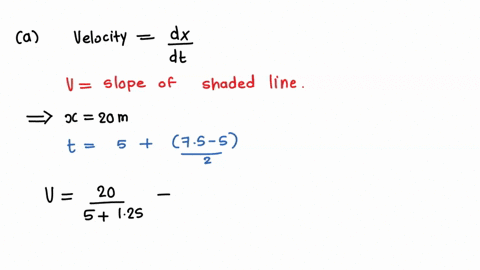 (a) Velocity = dx/dt
V = slope of shaded line.
⟹ x = 20 m
t = 5 + (7.5-5)/2
V = 20/(5+1.25) -